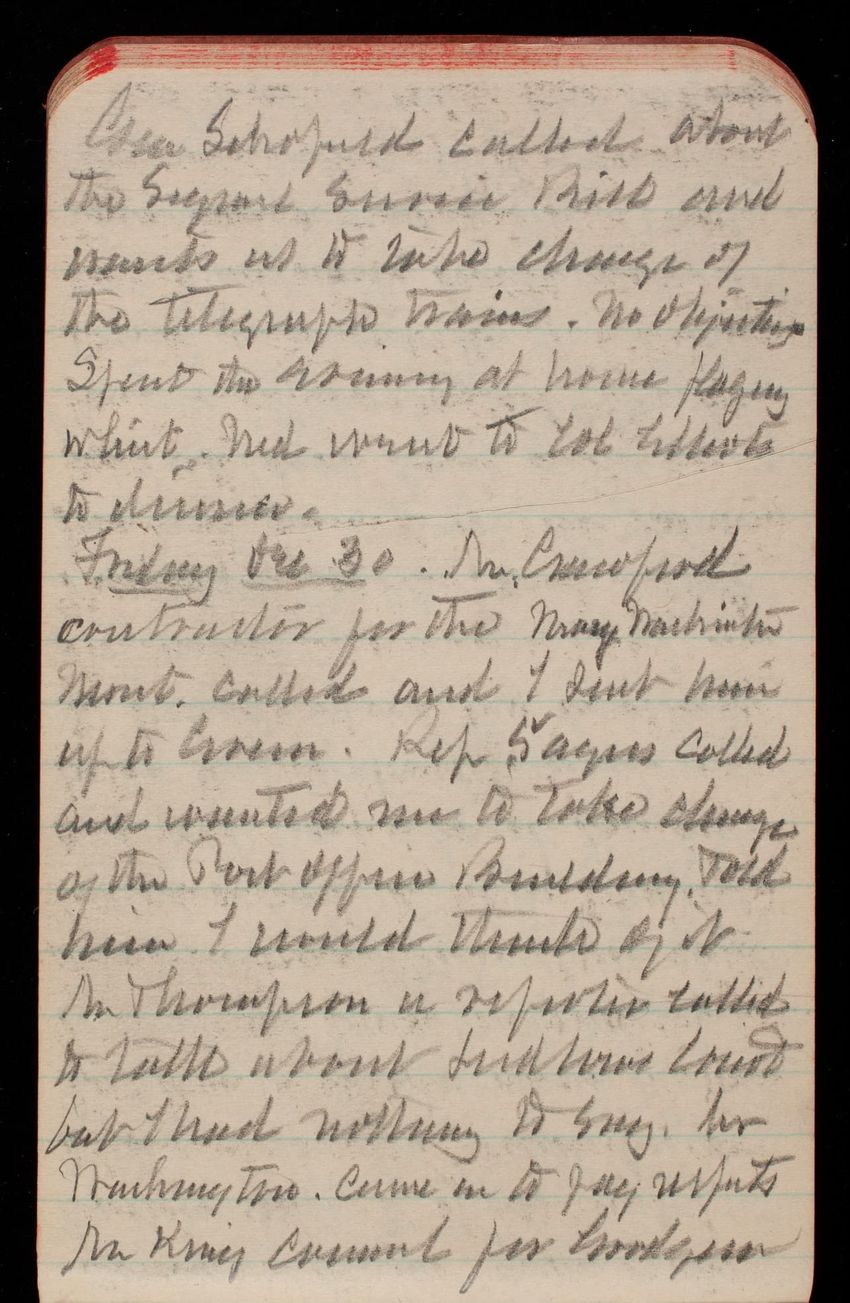 Gen Schofield called about
the Signal Service Bill and
wants us to take charge of
the telegraph trains. No objection
Spent the evening at home playing
whist. Ned went to Col Elliots
to dinner.
Friday Dec 30. Mr. Crawford
contractor for the Mary Washington
Mont. called and I sent him
up to Green. Rep Sayers called
and wanted me to take charge
of the Post Office Building. Told
him I would think of it
Mr Thompson a reporter called
to talk about Ludlows Court
but I had nothing to say. Mr
Washington. came in to pay respects
Mr King counsel for